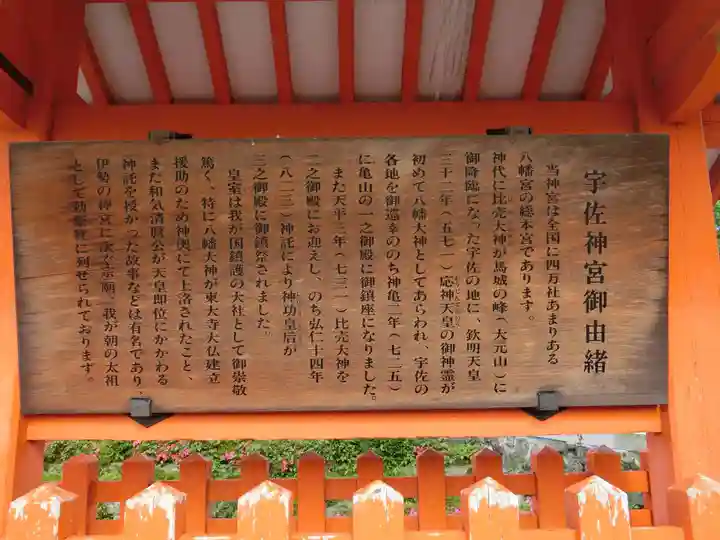 宇佐神宮御由緒
当神宮は全国に四万社あまりある
八幡宮の総本宮であります。
神代に比売大神が馬城の峰(大元山)に
御降臨になった宇佐の地に、欽明天皇
三十二年(五七一)応神天皇の御神霊が
初めて八幡大神としてあらわれ、宇佐の
各地を御巡幸ののち神亀二年(七二五)
に亀山の一之御殿に御鎮座になりました。
また天平三年(七三一)比売大神を
二之御殿にお迎えし、のち弘仁十四年
(八二三)神託により神功皇后が
三之御殿に御鎮祭されました。
皇室は我が国鎮護の大社として御崇敬
篤く、特に八幡大神が東大寺大仏建立
援助のため神輿にて上洛されたこと、
また和気清麿公が天皇即位にかかわる
神託を授かった故事などは有名であり
伊勢の神宮に次ぐ宗廟、我が朝の太祖
として勅祭社に列せられております。